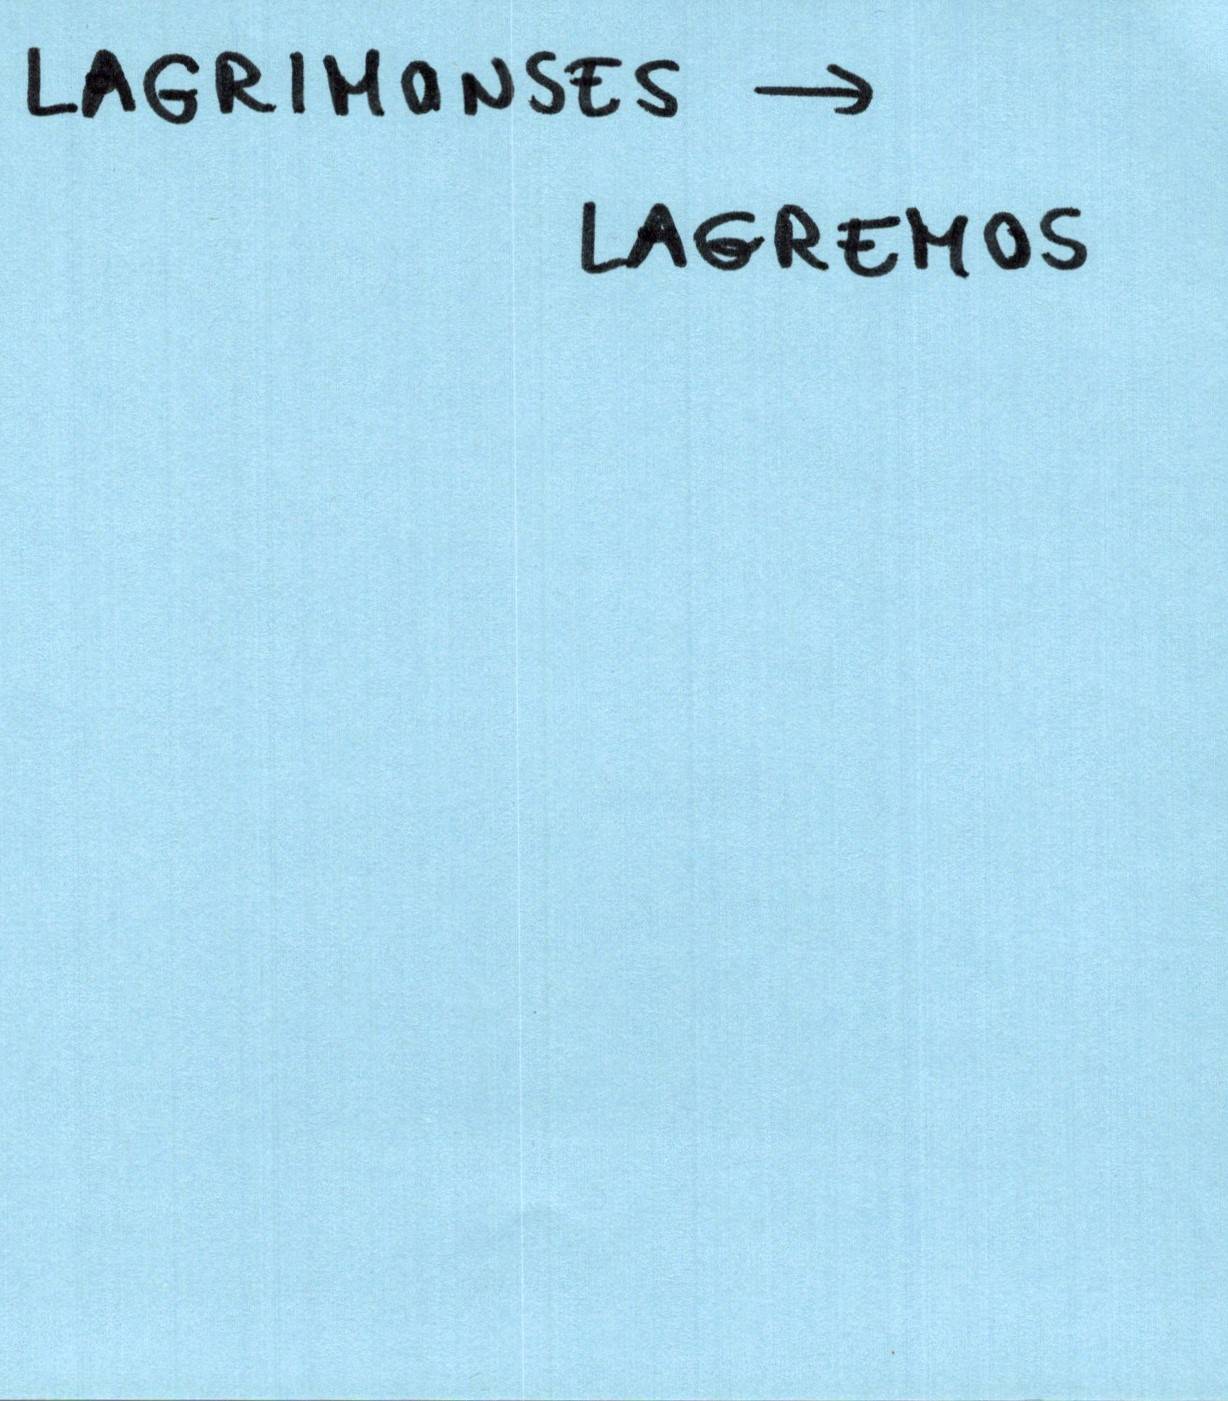 LAGRIMONSES →
LAGREMOS